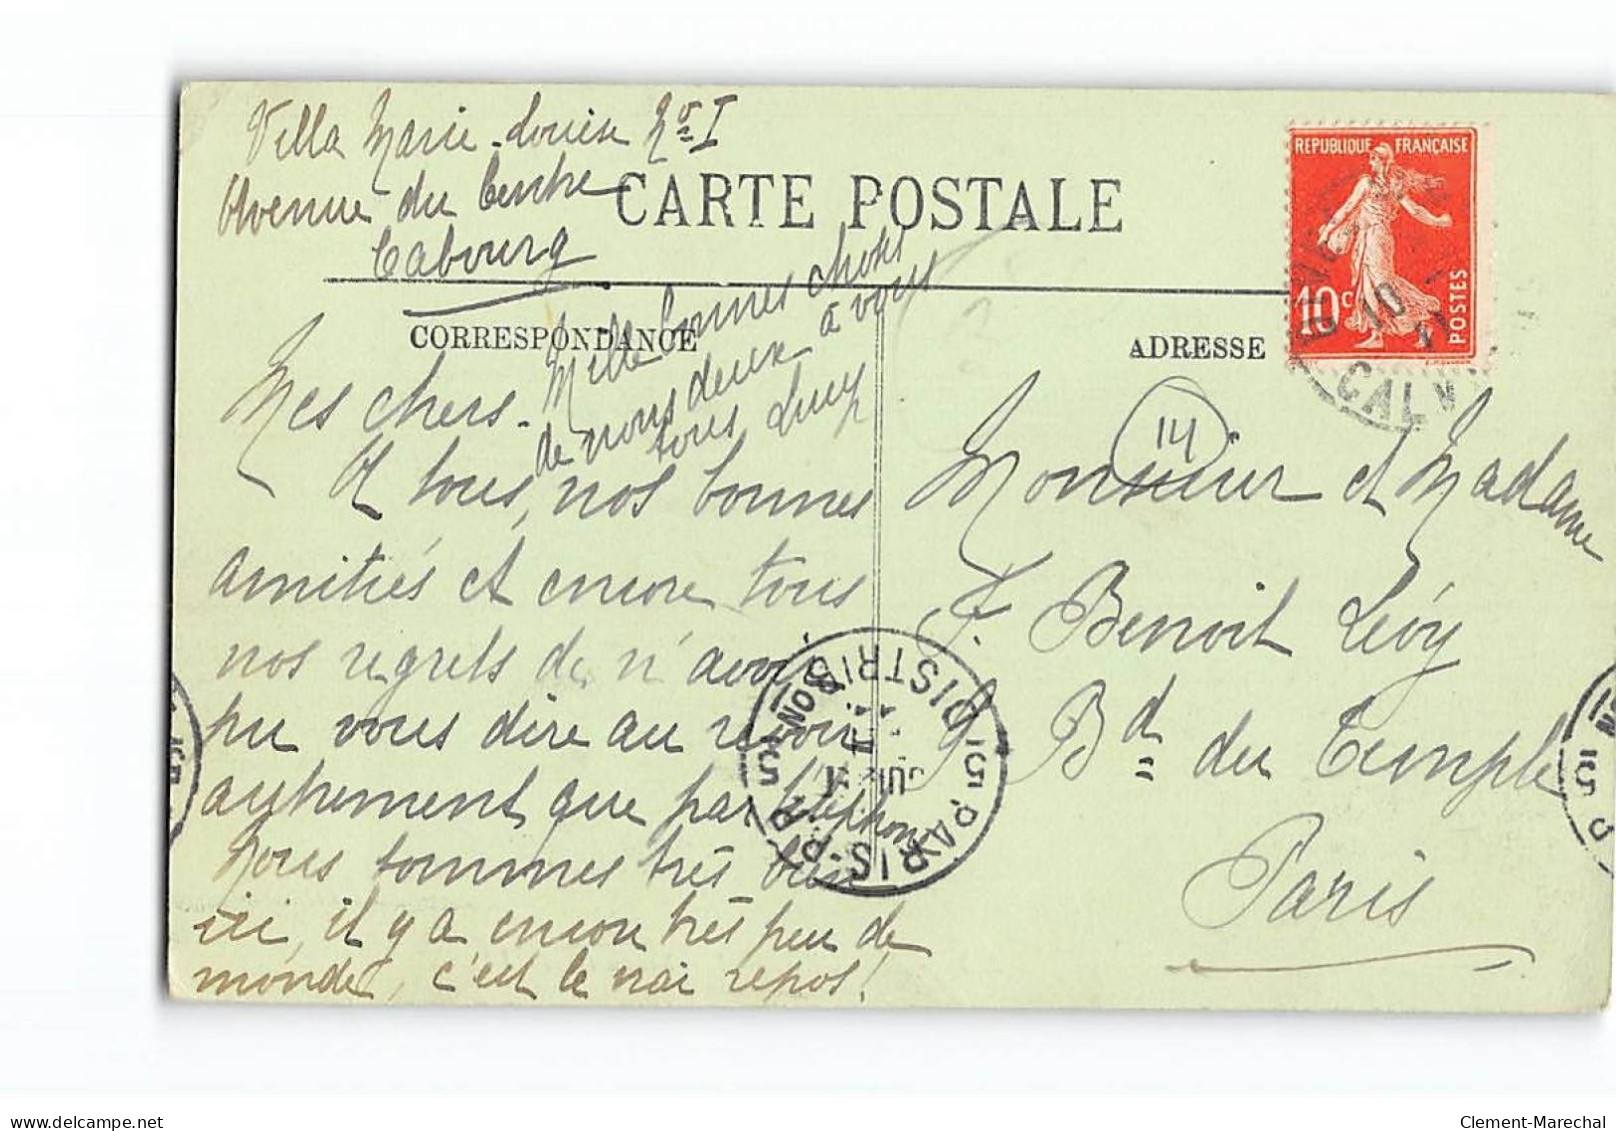 Villa Marie-Louise No I
Avenue du Centre
Cabourg
CARTE POSTALE
CORRESPONDANCE
ADRESSE
REPUBLIQUE FRANÇAISE
10c
POSTES
10
CALV
14
Mille bonnes choses
de nous deux à vous
tous Lucy
Mes chers.
A tous, nos bonnes
amitiés et encore tous
nos regrets de n'avoir
pu vous dire au revoir
autrement que par téléphone
Nous sommes très bien
ici, il y a encore très peu de
monde, c'est le vrai repos!
Monsieur et Madame
F. Benoit Lévy
9 Bd du Temple
Paris
PARIS R.P. DISTRIBON
15
delcampe.net
Clement-Marechal